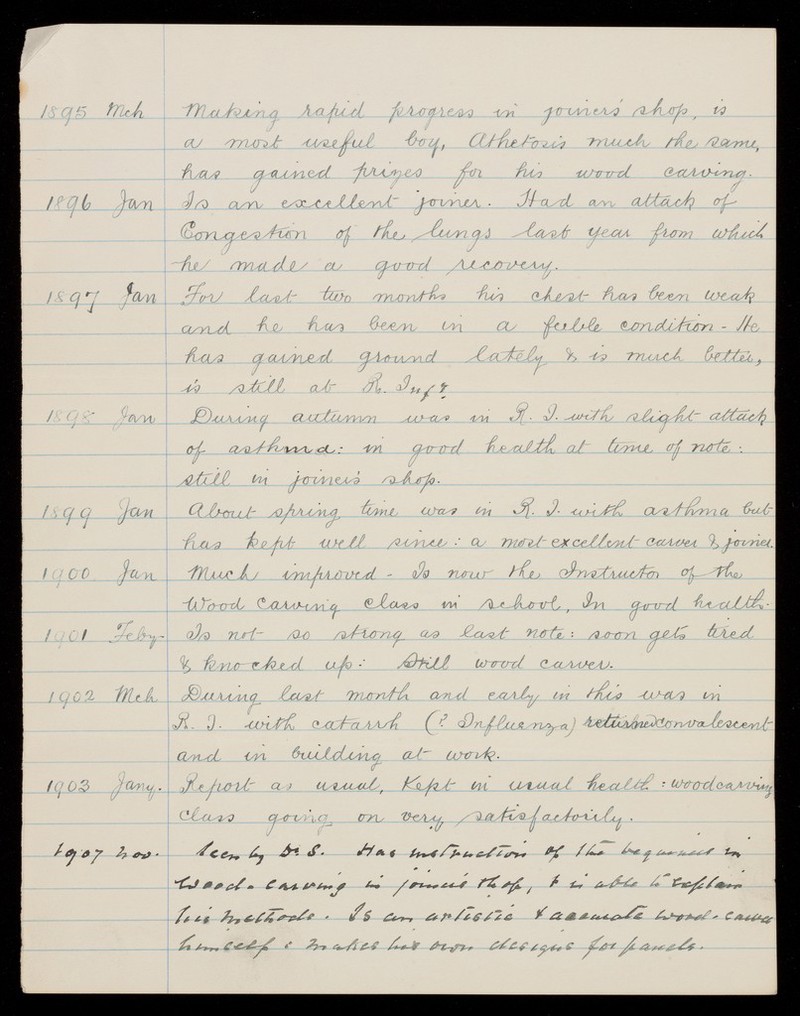 1895 Mch Making rapid progress in joiners' shop, is
a most useful boy, Athetosis much the same,
has gained prizes for his wood carving.
1896 Jan Is an excellent joiner. Had an attack of
Congestion of the lungs last year from which
he made a good recovery.
1897 Jan For last two months his chest has been weak
and he has been in a feeble condition - He
has gained ground lately & is much better,
is still at R. Infy.
1898 Jan During autumn was in R. I. with slight attack
of asthma: in good health at time of note:
still in joiner's shop.
1899 Jan About spring time was in R. I. with asthma but
has kept well since: a most excellent carver & joiner.
1900 Jan Much improved - Is now the Instructor of the
Wood carving class in school, In good health.
1901 Feby. Is not so strong as last note: soon gets tired
& knocked up: Still wood carver.
1902 Mch During last month and early in this was in
R. I. with catarrh (? Influenza) returned convalescent
and in building at work.
1903 Jany. Report as usual, Kept in usual health: woodcarving
class going on very satisfactorily.
1907 Nov. Seen by Dr S. Has instruction of the beginners in
Wood-carving in joiner's shop, & is able to explain
his methods. Is an artistic & accurate wood-carver
himself & makes his own designs for panels.